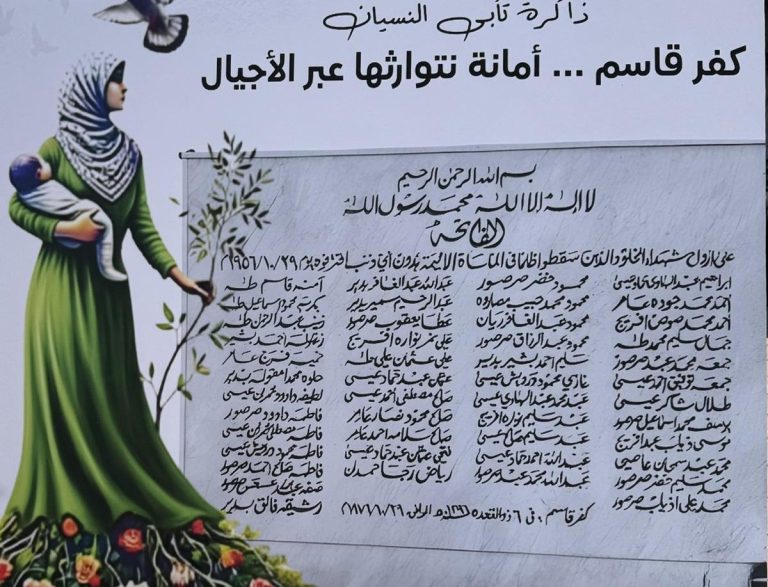 ذاكرة تأبى النسيان
كفر قاسم ... أمانة نتوارثها عبر الأجيال
بسم الله الرحمن الرحيم
لا اله الا الله محمد رسول الله
الفاتحة
على ارواح شهداء الخلود الذين سقطوا ظلما في المأساة الاليمة بدون أي ذنب اقترفوه يوم ٢٩/١٠/١٩٥٦م
ابراهيم عبد الهادي عيسى
احمد محمد جوده عامر
احمد محمد فريج
جمال سليم محمد طه
جمعه محمد عبد صرصور
جمعه توفيق احمد عيسى
طلال شاكر عيسى
محمد اسماعيل صرصور
موسى ذياب عبد فريج
محمد عبد سمحان عاصي
محمد سليم خضر صرصور
محمد علي ذياب صرصور
محمود خضر صرصور
محمود محمد حبيب مصاروه
محمود عبد الغافر ريان
محمود عبد الرازق صرصور
سليم احمد بشير بدير
غازي محمود درويش عيسى
عبد محمد عبد الهادي عيسى
عبد سليم فريج
عبد سليم صالح عيسى
عبد الله احمد حماد عيسى
عبد الله محمد عبد صرصور
عبد الله عبد الغافر بدير
عبد الرحيم سمير بدير
عطا يعقوب صرصور
علي نمر فريج
علي عثمان علي طه
عثمان عبد حماد عيسى
صالح مصطفى احمد عيسى
صالح محمود نصار عامر
صالح سلامه احمد عامر
فتحي عثمان عبد حماد عيسى
رياض رجا حمدان
آمنة قاسم طه
بكريه محمود اسماعيل طه
زينب عبد الرحمن طه
زغلوله احمد بشير
خميسه فرج عامر
حلوه محمد بدير
لطيفه داوود عيسى
فاطمه داوود صرصور
فاطمه مصطفى عيسى
فاطمه محمود بدير عيسى
فاطمه صالح احمد صرصور
صفه عبد الله صرصور
رشيقه فائق بدير
كفر قاسم : في ٦ ذو القعده ١٣٩٦ ه الموافق